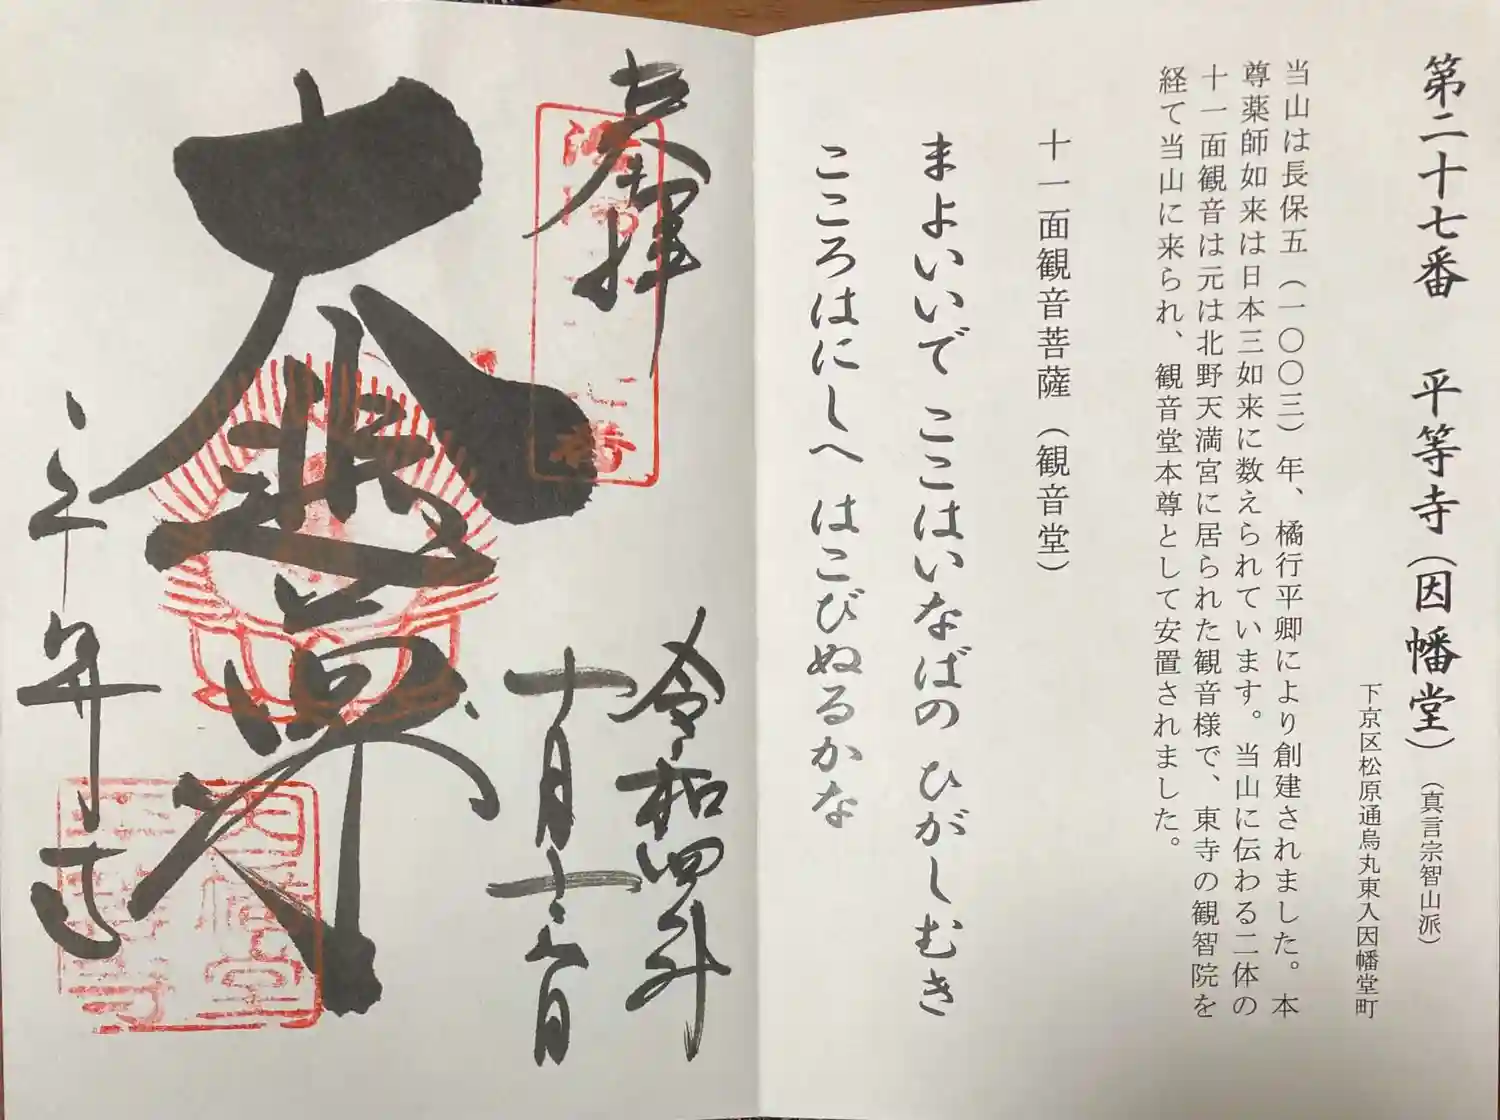 第二十七番 平等寺(因幡堂)(真言宗智山派)
下京区松原通烏丸東入因幡堂町
当山は長保五(一〇〇三)年、橘行平卿により創建されました。本
尊薬師如来は日本三如来に数えられています。当山に伝わる二体の
十一面観音は元は北野天満宮に居られた観音様で、東寺の観智院を
経て当山に来られ、観音堂本尊として安置されました。
十一面観音菩薩(観音堂)
まよいいで ここはいなばの ひがしむき
こころはにしへ はこびぬるかな
奉拝
令和四年
十月十六日
大悲尊
平等寺
因幡堂
平等寺